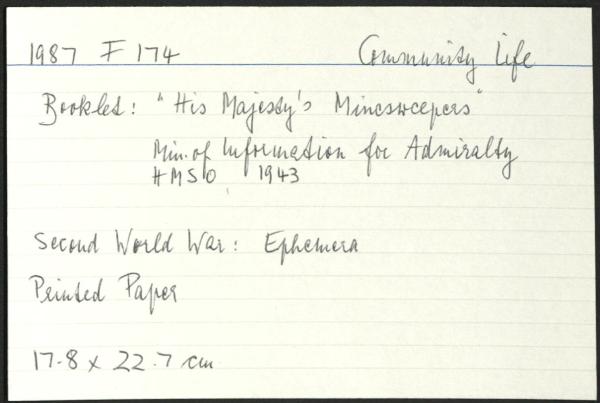 1987 F 174 Community Life
Booklet: "His Majesty's Minesweepers"
Min. of Information for Admiralty
HMSO 1943
Second World War: Ephemera
Printed Paper
17.8 x 22.7 cm